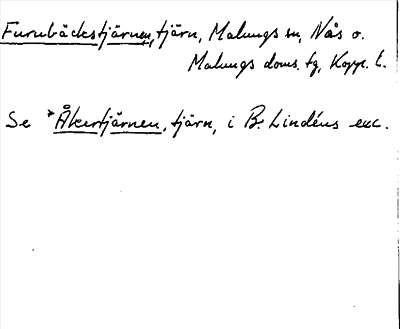 Furubäckstjärnen, tjärn, Malungs sn, Nås o.
Malungs doms. tg, Kopp. l.
Se *Åkertjärnen, tjärn, i B. Lindéns exc.